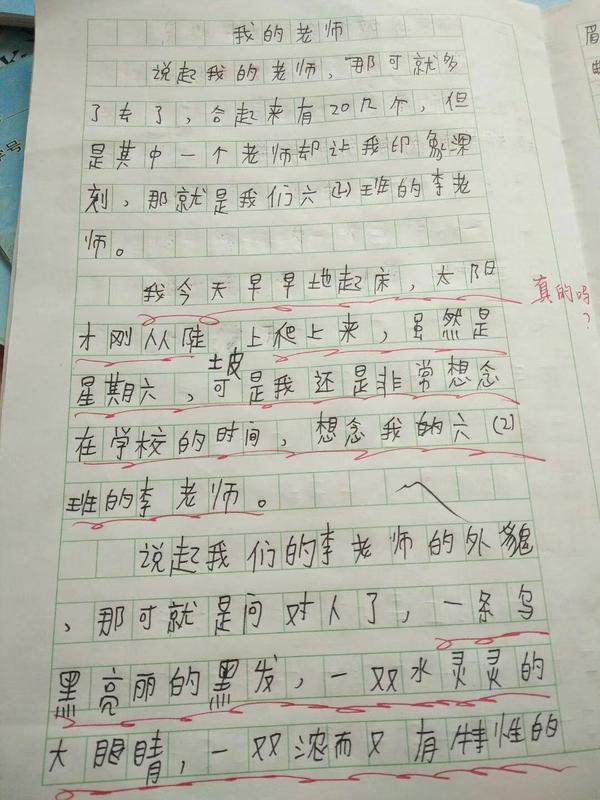 我的老师
说起我的老师，那可就多
了去了，合起来有20几个，但
是其中一个老师却让我印象深
刻，那就是我们六(2)班的李老
师。
我今天早早地起床，太阳
真的吗？
才刚从陡土皮上爬上来，虽然是
星期六，可是我还是非常想念
在学校的时间，想念我的六(2)
班的李老师。
说起我们的李老师的外貌
，那可就是问对人了，一条乌
黑亮丽的黑发，一双水灵灵的
大眼睛，一双浓而又有特性的
眉